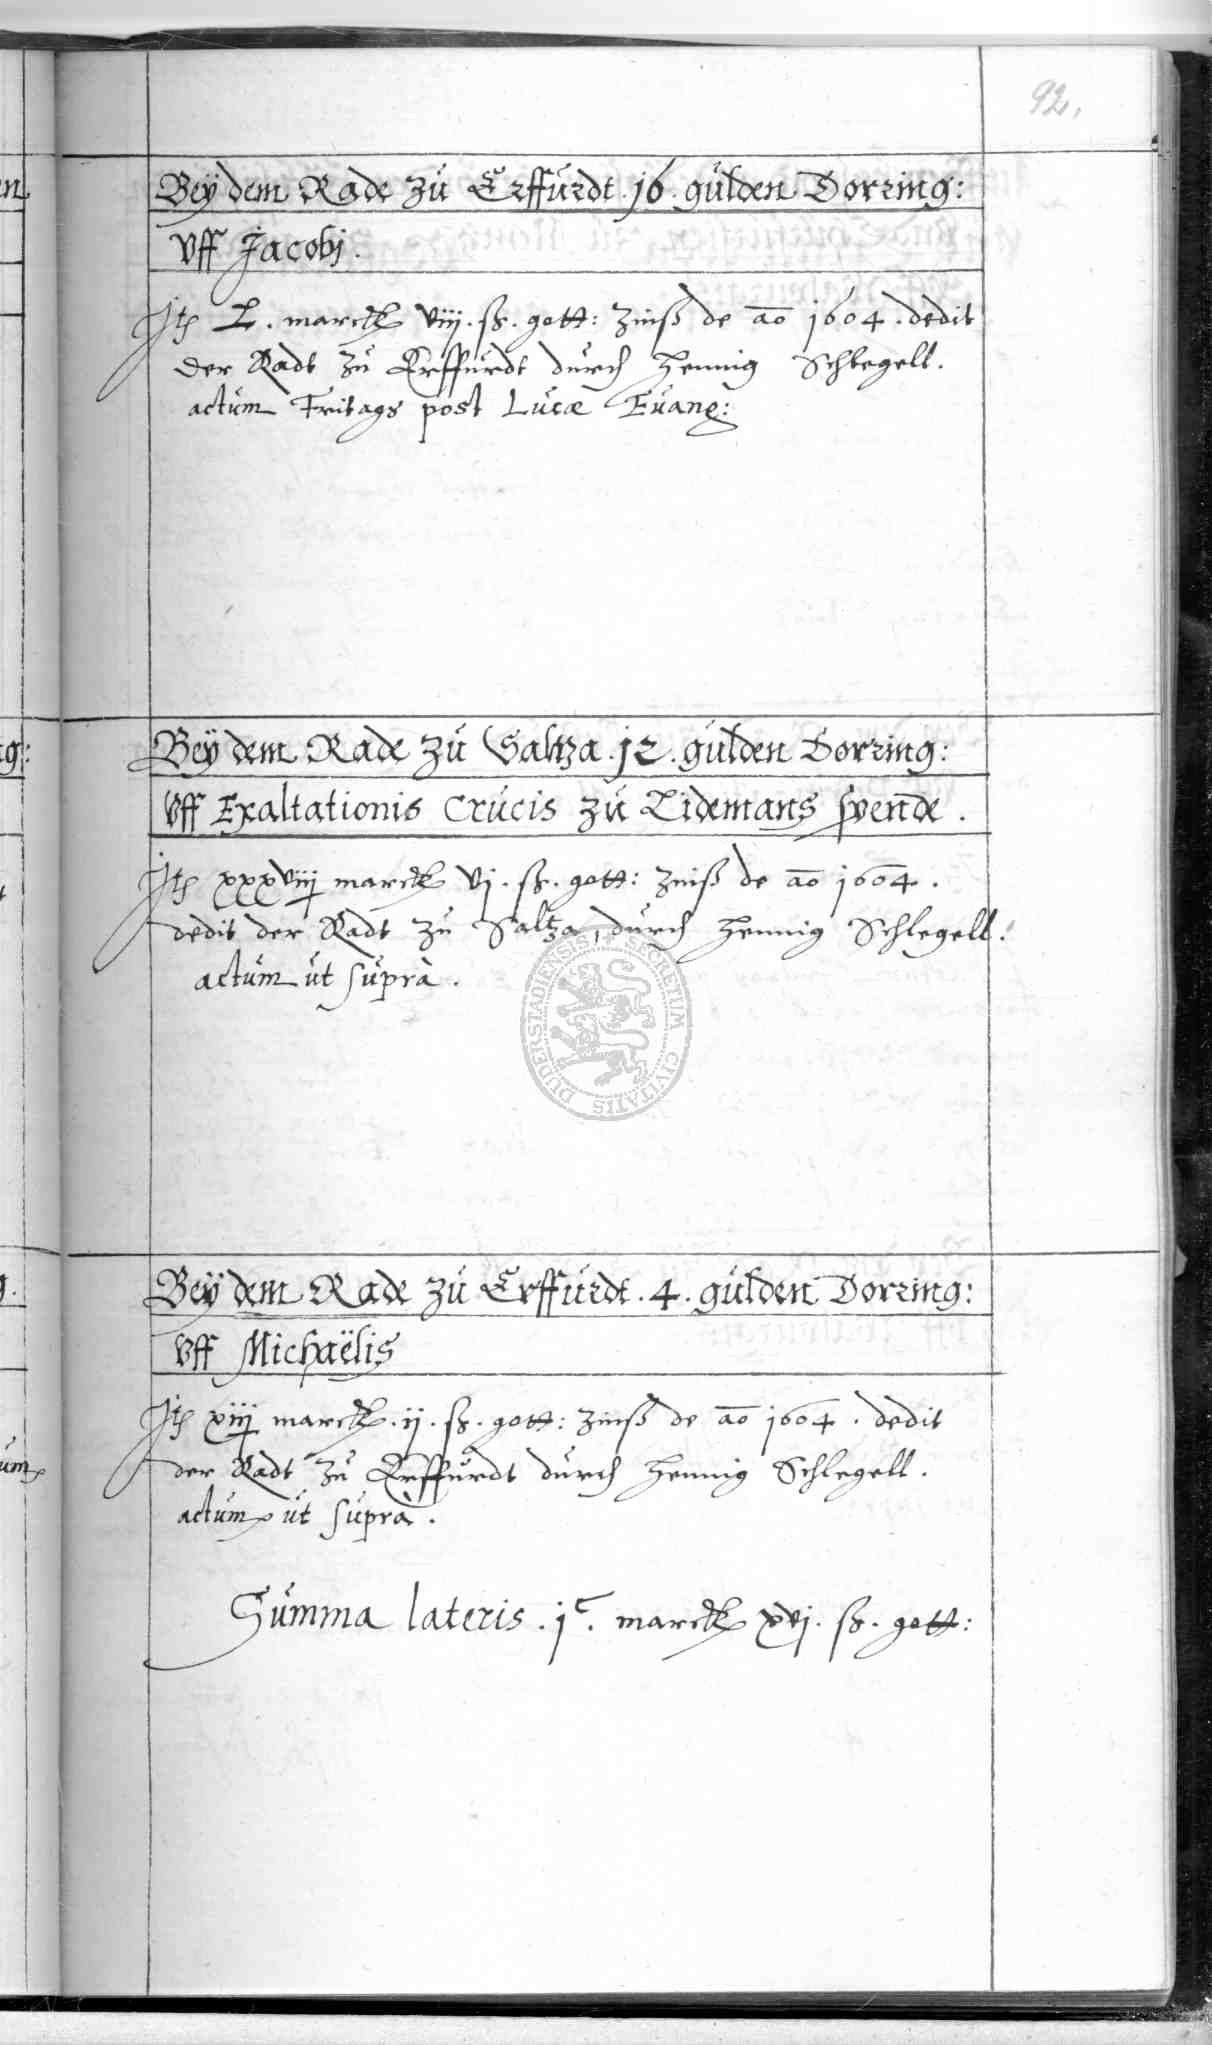 92.
Beÿ dem Rade zu Erffurdt . 16 . gulden Dorring:
vff Jacobj .
Jtem L . marck viij . ß . gott: Zinß de ao 1604 . dedit
der Radt zu Erffurdt durch Hennig Schlegell .
actum Fritags post Lucæ Euang:
Beÿ dem Rade zu Saltza . 12 . gulden Dorring:
vff Exaltationis Crucis zu Tidemans spende .
Jtem xxxviij marck vj . ß . gott: Zinß de ao 1604 .
dedit der Radt zu Saltza, durch Hennig Schlegell .
actum ut suprà .
SECRETUM CIVITATIS DUDERSTADIENSIS
Beÿ dem Rade zu Erffurdt . 4 . gulden Dorring:
vff Michaëlis
Jtem xiij marck . ij . ß . gott: Zinß de ao 1604 . dedit
der Radt zu Erffurdt durch Hennig Schlegell .
actum ut suprà .
Summa lateris . jc . marck xvj . ß . gott: